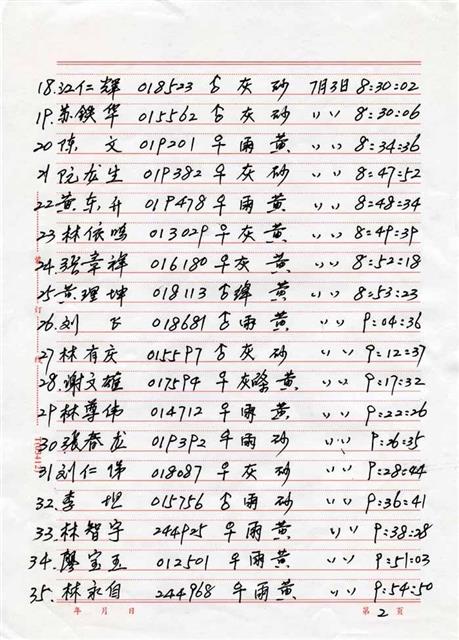 18.江仁辉 018523 ♂ 灰 砂 7月3日 8:30:02
19.苏铁华 015562 ♂ 灰 砂 〃 8:30:06
20 陈 文 019201 ♀ 雨 黄 〃 8:34:36
21 阮龙生 019382 ♀ 灰 砂 〃 8:47:52
22 黄东升 019478 ♀ 雨 黄 〃 8:48:34
23 林依鸣 013029 ♀ 灰 黄 〃 8:49:39
24.张章祥 016180 ♀ 灰 黄 〃 8:52:18
25 黄理坤 018113 ♂ 绛 黄 〃 8:53:23
26.刘 飞 018681 ♂ 雨 黄 〃 9:04:36
27 林有庆 015597 ♂ 灰 砂 〃 9:12:37
28.谢文雄 017594 ♀ 灰 黄 〃 9:17:32
29 林尊伟 014712 ♀ 雨 黄 〃 9:22:26
30 张春龙 019392 ♀ 雨 砂 〃 9:26:35
31 刘仁伟 018087 ♀ 灰 砂 〃 9:28:44
32.李 坦 015756 ♂ 雨 砂 〃 9:36:41
33.林智宇 244925 ♀ 雨 黄 〃 9:38:28
34.廖宝玉 012501 ♀ 雨 黄 〃 9:51:03
35.林永自 244968 ♀ 雨 黄 〃 9:54:50
年 月 日 第 2 页